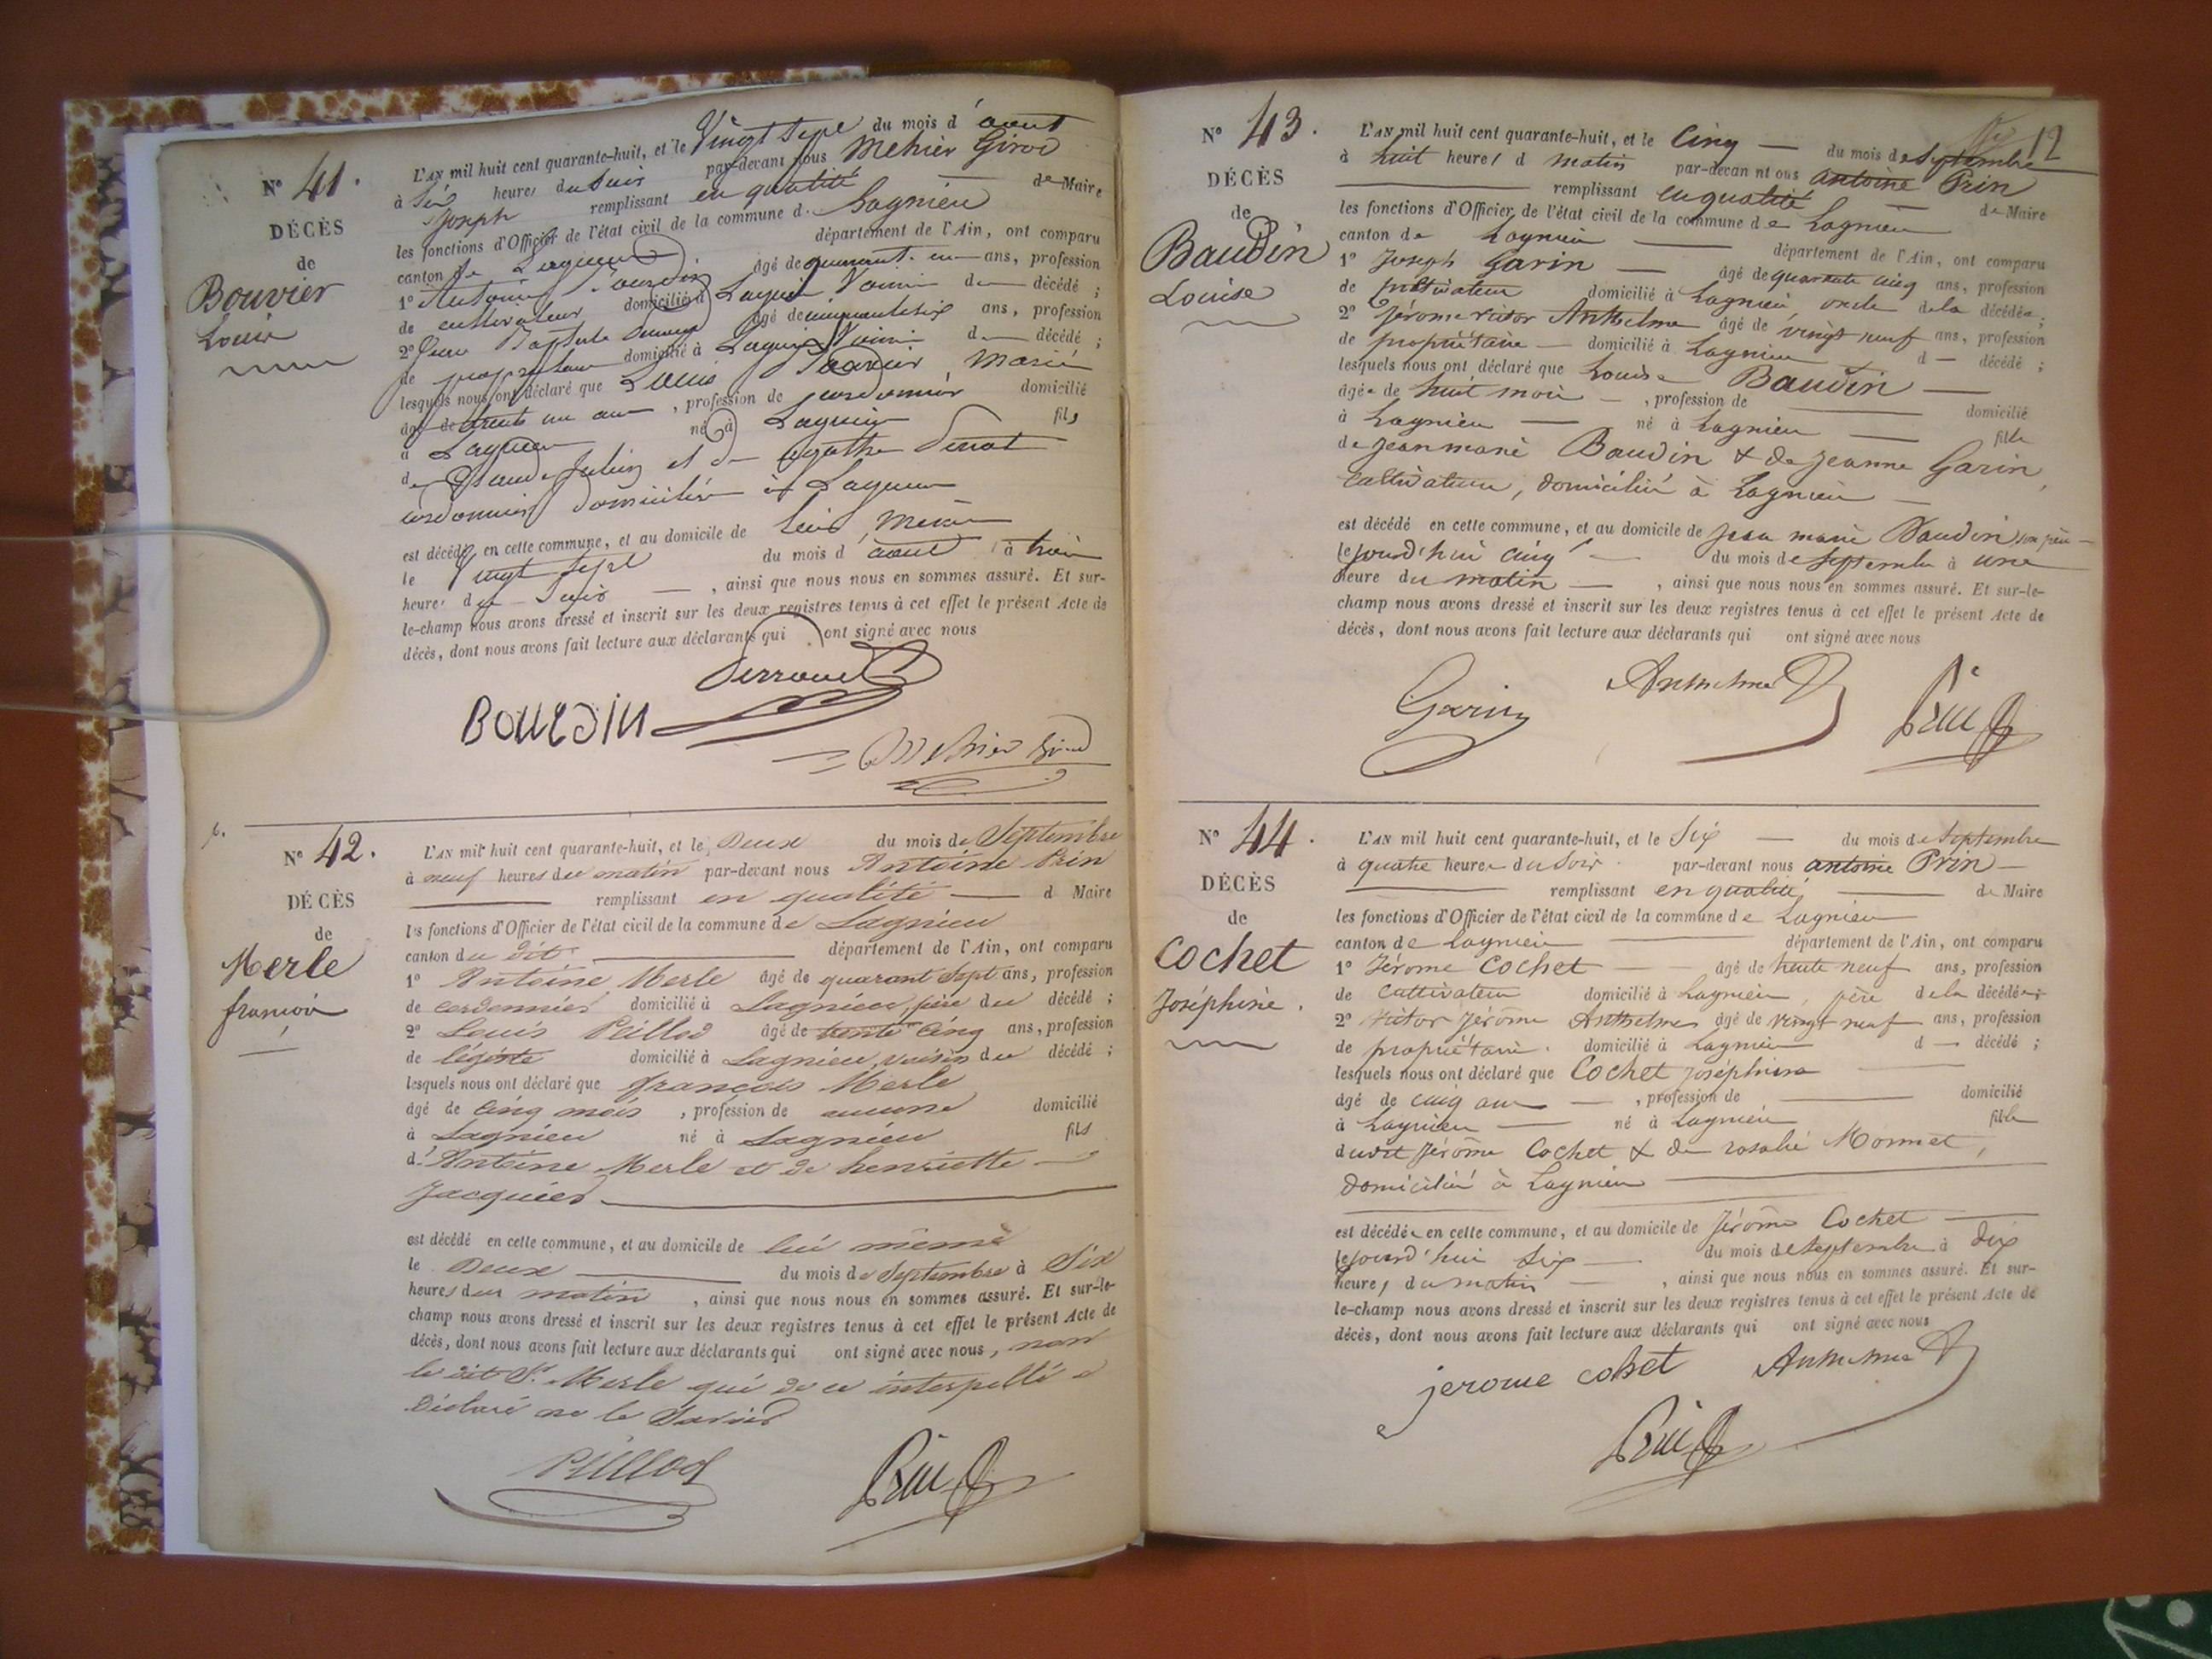 N° 41.
DÉCÈS
de
Bouvier
Louis
L'AN mil huit cent quarante-huit, et le Vingt Sept du mois d'aout
à Six heures du Soir par-devant nous Mehier Girod
Joseph remplissant en qualité de Maire
les fonctions d'Officier de l'état civil de la commune d. Lagnieu
canton de Lagnieu département de l'Ain, ont comparu
1° Antoine Bourdin âgé de quarant. un ans, profession
de cultivateur domicilié à Lagnieu Voisin du décédé ;
2° Jean Baptiste âgé de ans, profession
de propriétaire domicilié à Lagnieu Voisin d décédé ;
lesquels nous ont déclaré que Louis Bouvier, Marié
âgé de trente un ans, profession de cordonnier domicilié
à Lagnieu né à Lagnieu fils
de et de Agathe
cordonnier domicilié à Lagnieu
est décédé en cette commune, et au domicile de lui même
le Vingt Sept du mois d'aout à trois
heures du Soir, ainsi que nous nous en sommes assuré. Et sur-
le-champ nous avons dressé et inscrit sur les deux registres tenus à cet effet le présent Acte de
décès, dont nous avons fait lecture aux déclarants qui ont signé avec nous
BOURDIN
Mehier Girod
N° 42.
DÉCÈS
de
Merle
françois
L'AN mil huit cent quarante-huit, et le Deux du mois de Septembre
à neuf heures du matin par-devant nous Antoine Prin
remplissant en qualité d Maire
les fonctions d'Officier de l'état civil de la commune de Lagnieu
canton du dit département de l'Ain, ont comparu
1° Antoine Merle âgé de quarant Sept ans, profession
de cordonnier domicilié à Lagnieu, père du décédé ;
2° Louis Pillod âgé de trente cinq ans, profession
de légiste domicilié à Lagnieu, voisin du décédé ;
lesquels nous ont déclaré que françois Merle
âgé de cinq mois, profession de aucune domicilié
à Lagnieu né à Lagnieu fils
d'Antoine Merle et de henriette
Jacquier
est décédé en cette commune, et au domicile de lui même
le Deux du mois de Septembre à Six
heures du matin, ainsi que nous nous en sommes assuré. Et sur-le-
champ nous avons dressé et inscrit sur les deux registres tenus à cet effet le présent Acte de
décès, dont nous avons fait lecture aux déclarants qui ont signé avec nous, non
le dit Sr Merle qui de ce interpellé a
Déclaré ne le Savoir
Pillod
Prin
12
N° 43.
DÉCÈS
de
Baudin
Louise
L'AN mil huit cent quarante-huit, et le Cinq du mois de Septembre
à huit heures d matin par-devant nous antoine Prin
remplissant en qualité de Maire
les fonctions d'Officier de l'état civil de la commune de Lagnieu
canton de Lagnieu département de l'Ain, ont comparu
1° Joseph Garin âgé de quarante cinq ans, profession
de cultivateur domicilié à Lagnieu, oncle de la décédée ;
2° Jérome victor Anthelme âgé de vingt neuf ans, profession
de propriétaire domicilié à Lagnieu d décédé ;
lesquels nous ont déclaré que Louise Baudin
âgée de huit mois, profession de domicilié
à Lagnieu né à Lagnieu fille
de Jean marie Baudin & de Jeanne Garin,
cultivateur, domicilié à Lagnieu
est décédé en cette commune, et au domicile de Jean marie Baudin, son père
le jourd'hui cinq du mois de Septembre à une
heure du matin, ainsi que nous nous en sommes assuré. Et sur-le-
champ nous avons dressé et inscrit sur les deux registres tenus à cet effet le présent Acte de
décès, dont nous avons fait lecture aux déclarants qui ont signé avec nous
Garin
Anthelme
Prin
N° 44.
DÉCÈS
de
Cochet
Joséphine.
L'AN mil huit cent quarante-huit, et le Six du mois de Septembre
à quatre heures du Soir par-devant nous antoine Prin
remplissant en qualité de Maire
les fonctions d'Officier de l'état civil de la commune de Lagnieu
canton de Lagnieu département de l'Ain, ont comparu
1° Jérome Cochet âgé de trente neuf ans, profession
de cultivateur domicilié à Lagnieu, père de la décédée ;
2° Victor Jérôme Anthelme âgé de vingt neuf ans, profession
de propriétaire. domicilié à Lagnieu d décédé ;
lesquels nous ont déclaré que Cochet Joséphine
âgé de cinq ans, profession de domicilié
à Lagnieu né à Lagnieu fille
dudit Jérôme Cochet & de rosalie Monnet,
domicilié à Lagnieu
est décédée en cette commune, et au domicile de Jérôme Cochet
le jourd'hui Six du mois de Septembre à dix
heures du matin, ainsi que nous nous en sommes assuré. Et sur-
le-champ nous avons dressé et inscrit sur les deux registres tenus à cet effet le présent Acte de
décès, dont nous avons fait lecture aux déclarants qui ont signé avec nous
jerome cohet
Anthelme
Prin